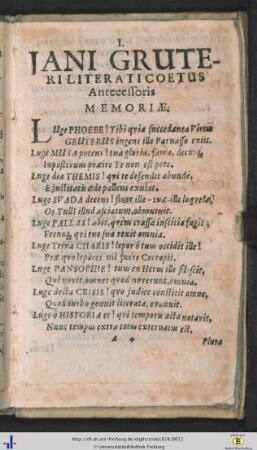 I.
JANI GRUTE-
RI LITERATI COETUS
Antecessoris
MEMORIÆ.
LUge PHOEBE! Tibi quia succedanea Virtus
GRUTERUS ingens ille Parnasso exiit.
Luge MUSA potens! tua gloria, fama, decus
Inposterum præire Te non est potis.
Luge dea THEMIS! qui te defendit abunde,
E justitiæ æde pallens exulat.
Luge SVADA decens! sunt illæ tuæ illæ loquelæ,
Os Tulli illud obmutuit.
Luge PALLAS! abit, quem crassa inscitia fugit
Frenos, qui tuo sua vexit omnia.
Luge Trina CHARIS! lepor ô tuus occidit ille!
Præ quo lepôres nil fuere Cecropii.
Luge PANSOPHIE! tuus en Herus ille silescit,
Qui novit, omnes quod noverunt, omnia.
Luge docta CRISIS! quo judice constitit omne,
Quod turba gemuit literata, evanuit.
Luge ô HISTORIA et! qui temporis acta notavit,
Nunc tempus extra totus externatus est.
A
Plura
http://dl.ub.uni-freiburg.de/diglit/
© Universitätsbibliothek Freiburg